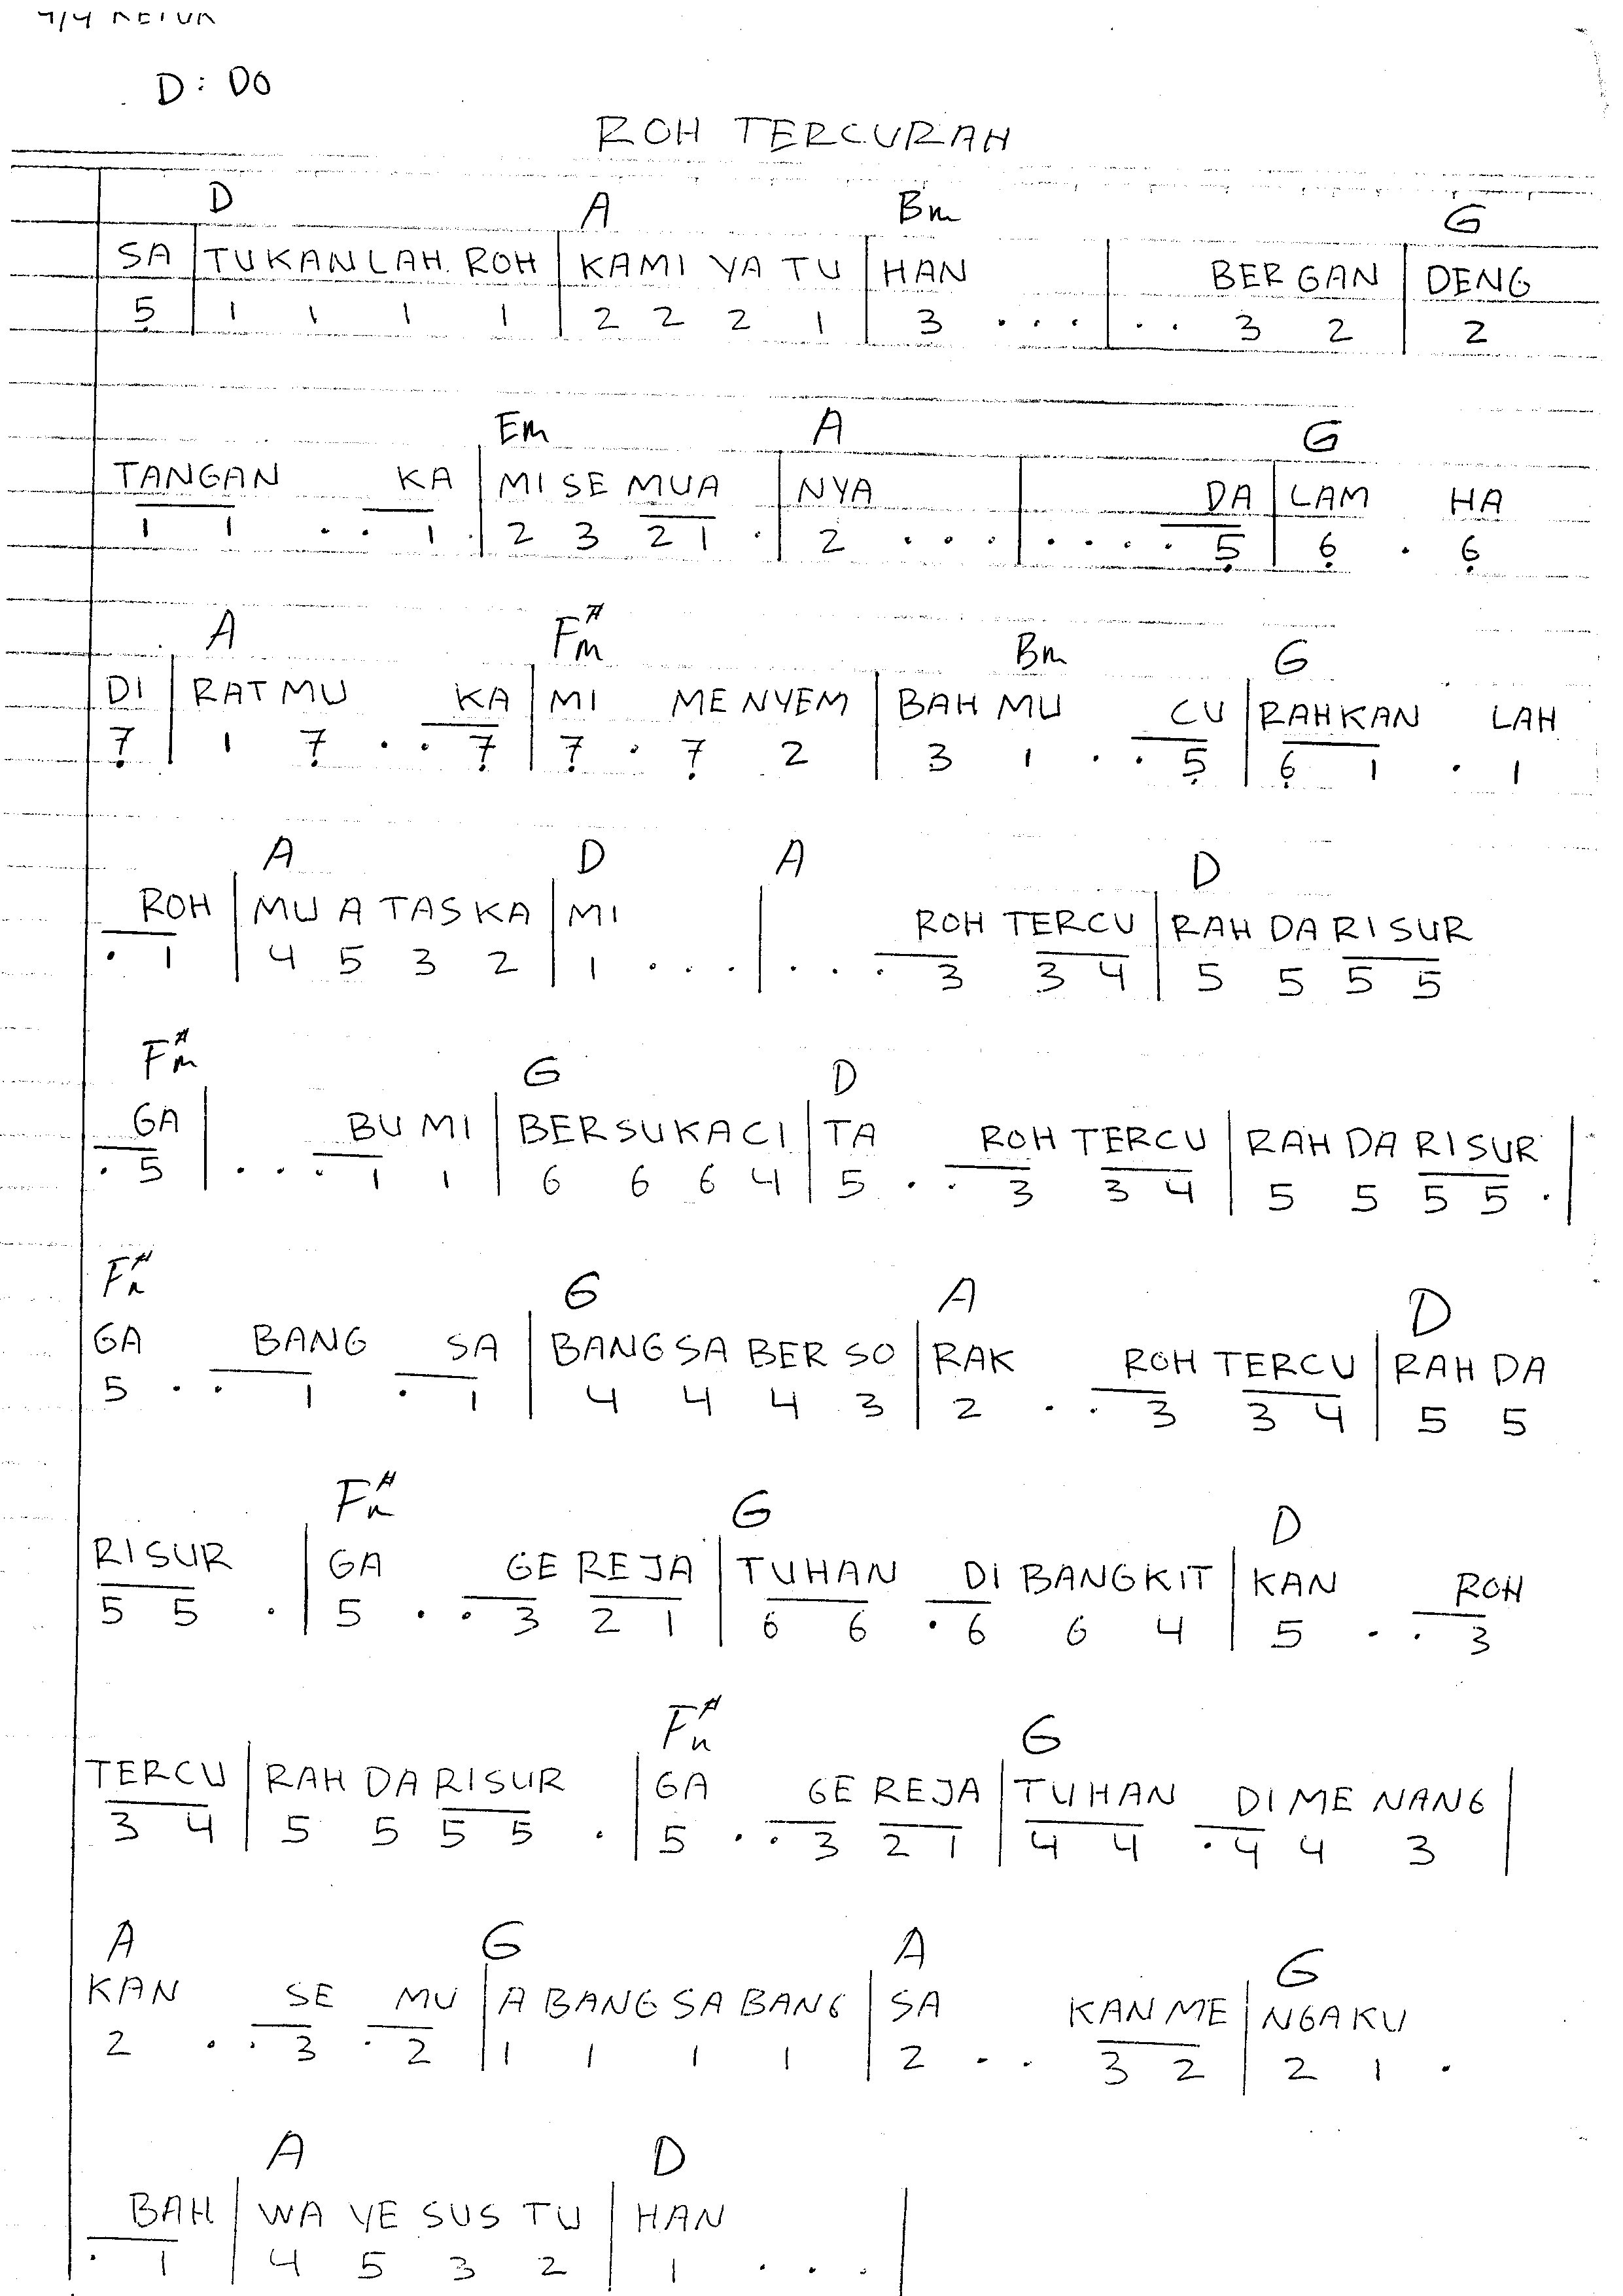 4/4
D : DO
ROH TERCURAH
D A Bm G
SA | TUKANLAH ROH | KAMI YA TU | HAN | BER GAN | DENG
5̣ | 1 1 1 1 | 2 2 2 1 | 3 . . . | . . 3 2 | 2
Em A G
TANGAN KA | MI SE MUA | NYA | DA | LAM HA
1 1 . . 1 . | 2 3 2 1 . | 2 . . . | . . . . 5̣ | 6̣ . 6̣
A F#m Bm G
DI | RAT MU KA | MI ME NYEM | BAH MU CU | RAHKAN LAH
7̣ | 1 7̣ . . 7̣ | 7̣ . 7̣ 2 | 3 1 . . 5̣ | 6̣ 1 . 1
A D A D
ROH | MU A TAS KA | MI | ROH TERCU | RAH DA RI SUR
. 1 | 4 5 3 2 | 1 . . . | . . . 3 3 4 | 5 5 5 5
F#m G D
GA | BU MI | BERSUKACI | TA ROH TERCU | RAH DA RI SUR |
. 5 | . . . 1 1 | 6 6 6 4 | 5 . . 3 3 4 | 5 5 5 5 . |
F#m G A D
GA BANG SA | BANG SA BER SO | RAK ROH TERCU | RAH DA
5 . . 1 . 1 | 4 4 4 3 | 2 . . 3 3 4 | 5 5
F#m G D
RI SUR | GA GE REJA | TUHAN DI BANGKIT | KAN ROH
5 5 . | 5 . . 3 2 1 | 6 6 . 6 6 4 | 5 . . 3
F#m G
TERCU | RAH DA RI SUR | GA GE REJA | TUHAN DI ME NANG |
3 4 | 5 5 5 5 . | 5 . . 3 2 1 | 4 4 . 4 4 3 |
A G A G
KAN SE MU | A BANG SA BANG | SA KAN ME | NGAKU
2 . . 3 . 2 | 1 1 1 1 | 2 . . 3 2 | 2 1 .
A D
BAH | WA YE SUS TU | HAN |
. 1 | 4 5 3 2 | 1 . . . |